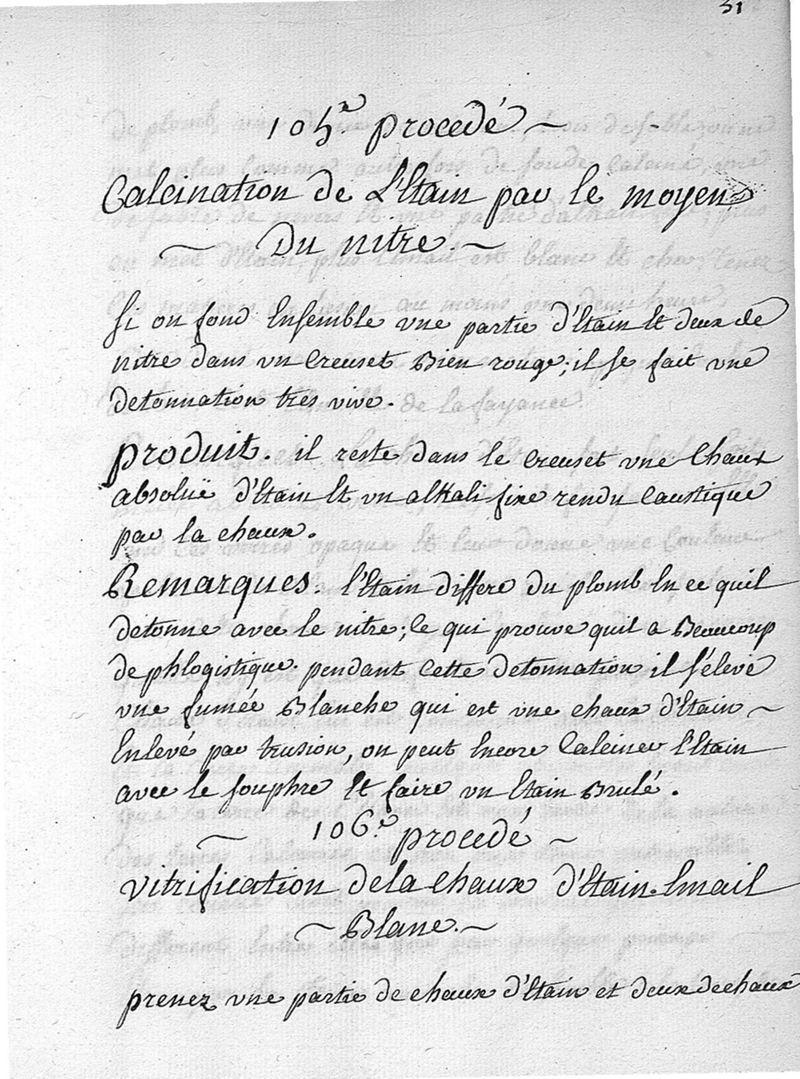 51
105e procedé
Calcination de L'Etain par le moyen
Du nitre
Si on fond Ensemble une partie d'Etain Et deux de
nitre dans un Creuset Bien rouge; il se fait une
detonnation tres vive.
produit. il reste dans le Creuset une Chaux
absoluë d'Etain Et un alkali fixe rendu Caustique
par la chaux.
Remarques. l'Etain differe du plomb En ce quil
detonne avec le nitre; Ce qui prouve quil a Beaucoup
de phlogistique. pendant Cette detonnation il s'éleve
une fumée Blanche qui est une chaux d'Etain
Enlevé par trusion, on peut Encore Calciner l'Etain
avec le souphre Et faire un Etain Brulé.
106.e procedé
vitrification de la Chaux d'Etain. Email
Blanc.
prenez une partie de chaux d'Etain et deux de chaux